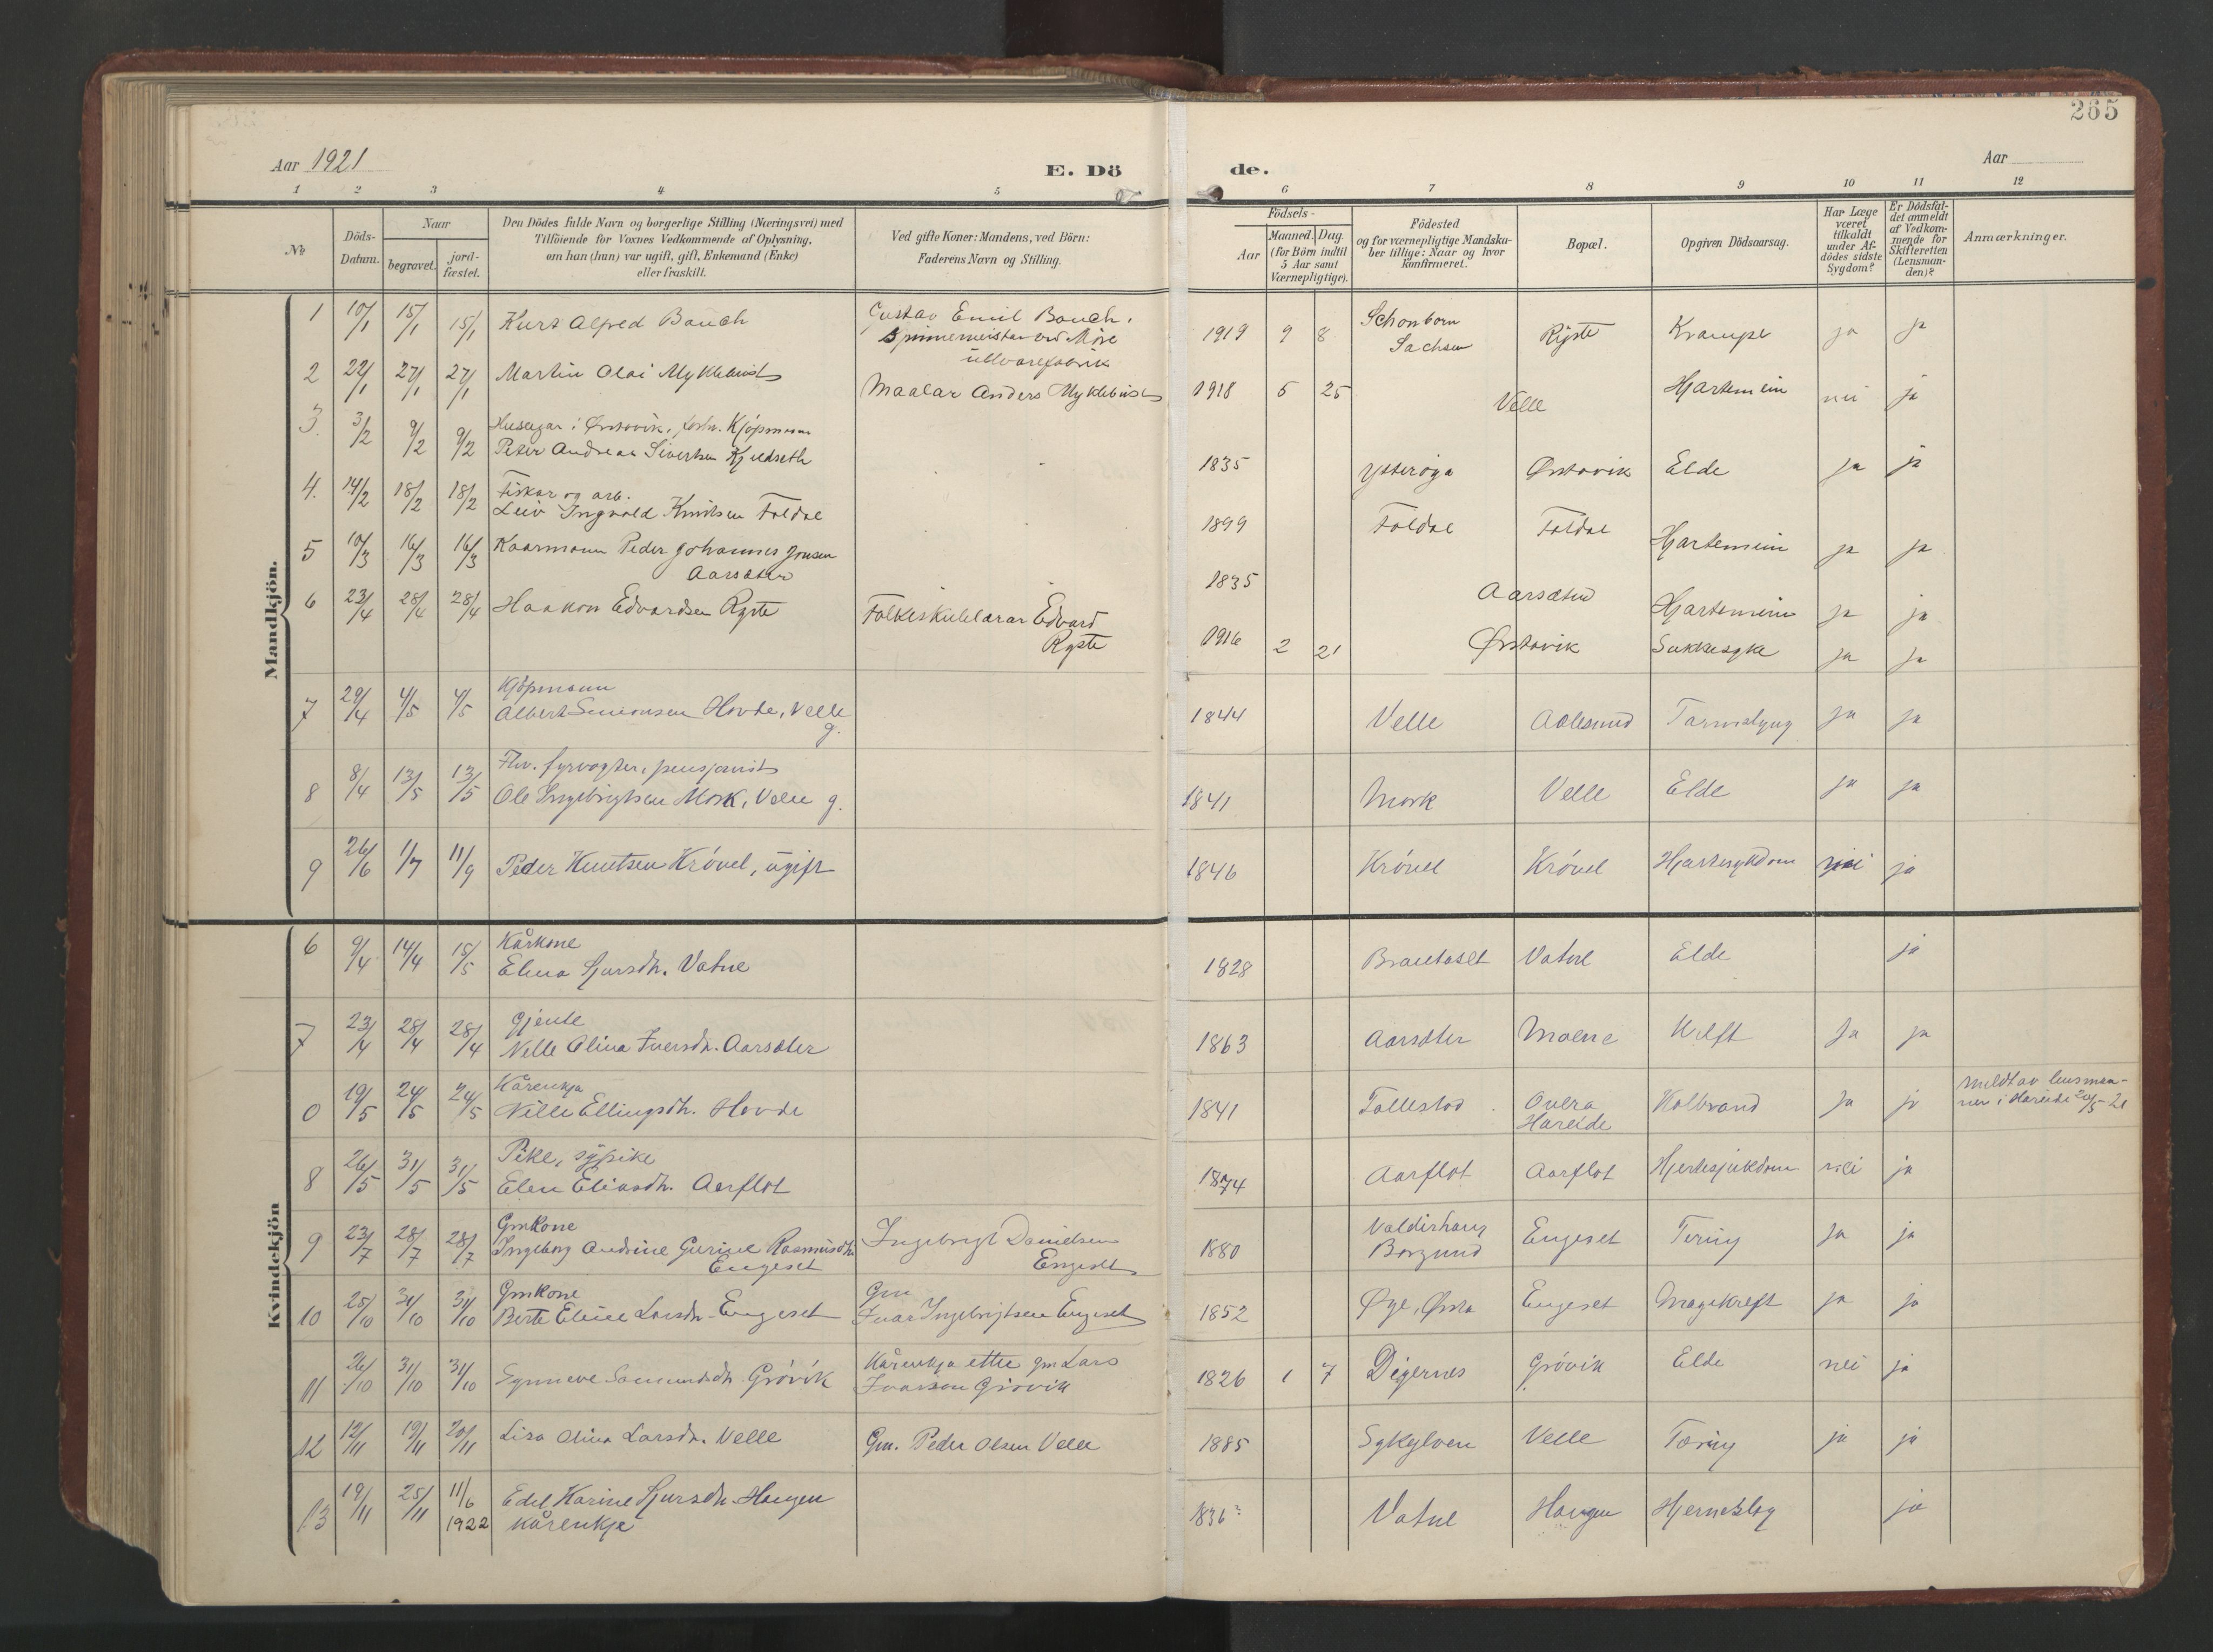 265
Aar 1921
E. Dö
de.
Aar
1 2 3 4 5 6 7 8 9 10 11 12
No
Döds-
Datum.
Naar
begravet.
jord-
fæstet.
Den Dödes fulde Navn og borgerlige Stilling (Næringsvei) med
Tilföiende for Voxnes Vedkommende af Oplysning,
om han (hun) var ugift, gift, Enkemand (Enke)
eller fraskilt.
Ved gifte Koner: Mandens, ved Börn:
Faderens Navn og Stilling.
Födsels-
Aar
Maaned. Dag
(for Börn indtil
5 Aar samt
Værnepligtige).
Födested
og for værnepligtige Mandska-
ber tillige: Naar og hvor
konfirmeret.
Bopæl.
Opgiven Dödsaarsag.
Har Læge
været
tilkaldt
under Af-
dödes sidste
Sygdom?
Er Dödsfal-
det anmeldt
af Vedkom-
mende for
Skifteretten
(Lensman-
den)?
Anmærkninger.
Mandkjön.
1 10/1 15/1 15/1 Kurt Alfred Bauch Gustav Emil Bauch, 1919 9 8 Schönborn Ryste Krampe ja ja
Spinnemeister ved Möre Sachsen
ullvarefabrik
2 22/1 27/1 27/1 Martin Olai Myklebust Maalar Anders Myklebust 1918 5 25 Velle Hjartemein nei ja
3. 3/2 9/2 9/2 Huseigar i Ørstavik, forh. Kjöpmann
Peter Andreas Sivertsen Kjeldseth 1835 Ytterøya Ørstavik Elde ja ja
4. 14/2 18/2 18/2 Fiskar og arb.
Leiv Ingvald Knutsen Foldal 1899 Foldal Foldal Hjartemein ja ja
5 10/3 16/3 16/3 Kaarmann Peder Johannes Jonsen
Aarsæter 1835 Aarsæter Hjartemein ja ja
6 23/4 28/4 28/4 Haakon Edvardsen Ryste Folkeskulelærar Edvard
Ryste 1916 2 21 Ørstavik Sukkersyke ja ja
7 29/4 4/5 4/5 Kjöpmann
Albert Simonsen Hovde, Velle g. 1844 Velle Aalesund Tarmslyng ja ja
8 8/4 13/5 13/5 Fhv. fyrvogter, pensjonist
Ole Ingebrigtsen Mork, Velle g. 1841 Mork Velle Elde ja ja
9 26/6 1/7 11/9 Peder Knutsen Krövel, ugift 1846 Krövel Krövel Hjartesykdom nei ja
Kvindekjön
6 9/4 14/4 15/5 Kårkone
Elena Sjursdtr. Vatne 1828 Brautaset Vatne Elde ja
7 23/4 28/4 28/4 Gjente
Nelle Olina Iversdtr. Aarsæter 1863 Aarsæter Moene Kreft ja ja
0 19/5 24/5 24/5 Kårenkja
Nille Ellingsdtr. Hovde 1841 Follestad Øvera Kolbrand ja ja meldt av lensman-
Hareide nen i Hareide 20/5 21
8 26/5 31/5 31/5 Pike, sypike
Elen Eliasdtr. Aarflot 1874 Aarflot Aarflot Hjertesjukdom nei ja
9 23/7 28/7 28/7 Gmkone
Ingeborg Andrine Gurine Rasmusdtr. Ingebrigt Danielsen 1880 Valderhaug Engeset Tering ja ja
Engeset Engeset Borgund
10 25/10 31/10 31/10 Gmkone Gm
Berte Eline Larsdtr. Engeset Ivar Ingebrigtsen Engeset 1852 Øye, Ørsta Engeset Magekreft ja ja
11 26/10 31/10 31/10 Synneve Samundsdtr. Grövik Kårenkja etter gm Lars
Ivarson Grövik 1826 1 7 Digernes Grövik Elde nei ja
12 12/11 19/11 20/11 Lisa Olina Larsdtr. Velle Gm. Peder Olsen Velle 1885 Sykylven Velle Tæring ja ja
13 19/11 25/11 11/6 Edel Karine Sjursdtr. Haugen 1836? Vatne Haugen Hjerneslag ja
1922 kårenkje